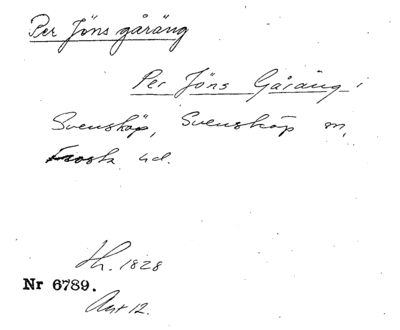 Per Jöns gåräng
Per Jöns Gåräng i
Svensköp, Svensköp sn,
Frosta hd.
Lh. 1828
Nr 6789.
Akt 12.